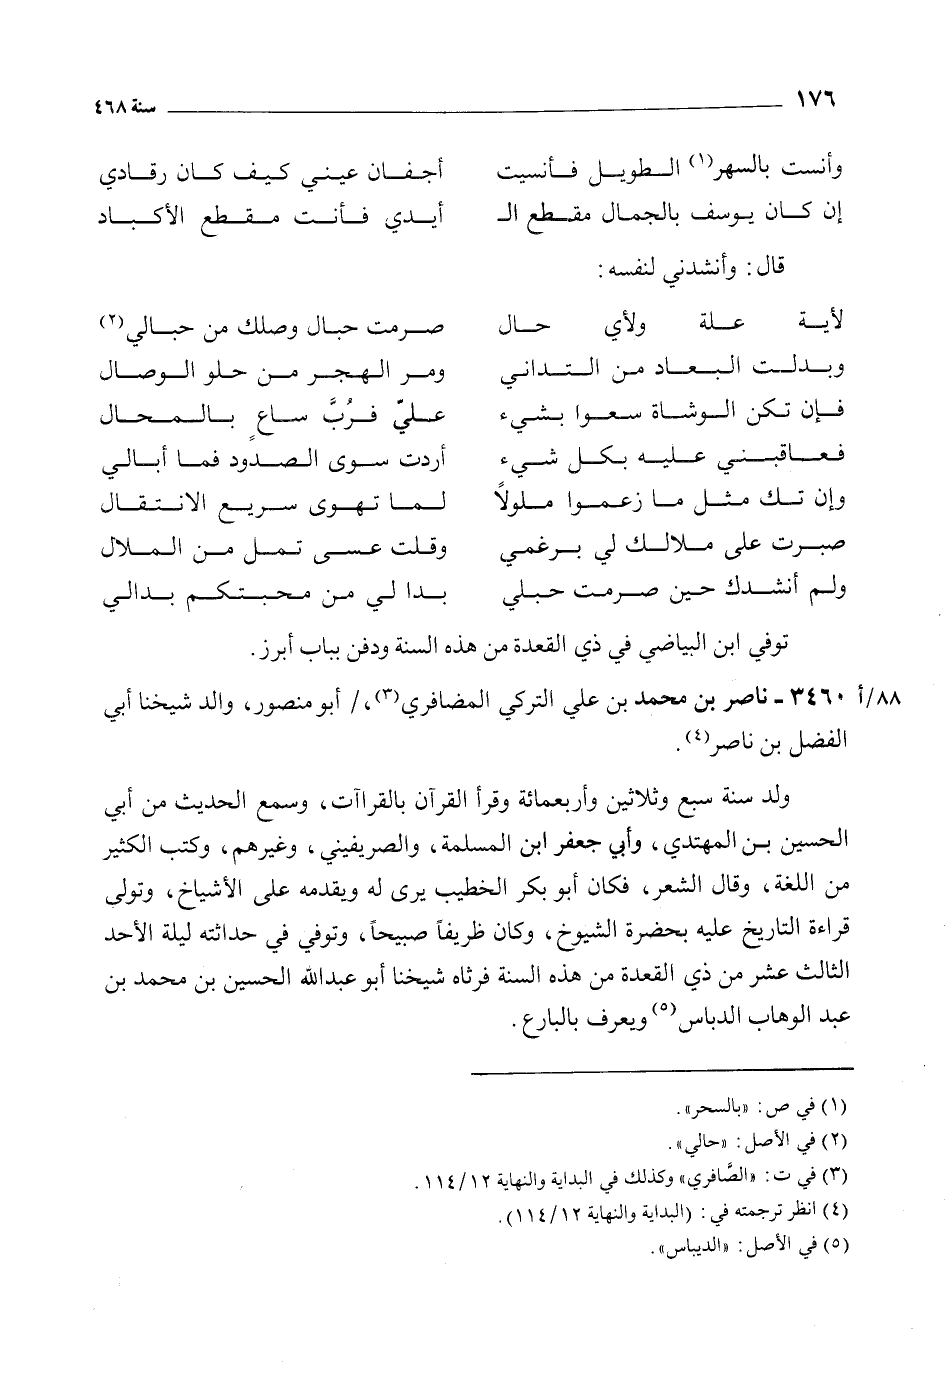 ١٧٦ سنة ٤٦٨
وأنست بالسهر(١) الطويل فأنسيت أجفان عيني كيف كان رقادي
إن كان يوسف بالجمال مقطع الـ أيدي فأنت مقطع الأكباد
قال: وأنشدني لنفسه:
لأية علة ولأي حال صرمت حبال وصلك من حبالي(٢)
وبدلت البعاد من التداني ومر الهجر من حلو الوصال
فإن تكن الوشاة سعوا بشيء عليّ فرُبَّ ساعٍ بالمحال
فعاقبني عليه بكل شيء أردت سوى الصدود فما أبالي
وإن تك مثل ما زعموا ملولاً لما تهوى سريع الانتقال
صبرت على ملالك لي برغمي وقلت عسى تمل من الملال
ولم أنشدك حين صرمت حبلي بدا لي من محبتكم بدالي
توفي ابن البياضي في ذي القعدة من هذه السنة ودفن بباب أبرز.
٨٨/أ ٣٤٦٠ - ناصر بن محمد بن علي التركي المضافري(٣)،/ أبو منصور، والد شيخنا أبي
الفضل بن ناصر(٤).
ولد سنة سبع وثلاثين وأربعمائة وقرأ القرآن بالقراآت، وسمع الحديث من أبي
الحسين بن المهتدي، وأبي جعفر ابن المسلمة، والصريفيني، وغيرهم، وكتب الكثير
من اللغة، وقال الشعر، فكان أبو بكر الخطيب يرى له ويقدمه على الأشياخ، وتولى
قراءة التاريخ عليه بحضرة الشيوخ، وكان ظريفاً صبيحاً، وتوفي في حداثته ليلة الأحد
الثالث عشر من ذي القعدة من هذه السنة فرثاه شيخنا أبو عبدالله الحسين بن محمد بن
عبد الوهاب الدباس(٥) ويعرف بالبارع.
(١) في ص: «بالسحر».
(٢) في الأصل: «حالي».
(٣) في ت: «الصَّافري» وكذلك في البداية والنهاية ١١٤/١٢.
(٤) انظر ترجمته في: (البداية والنهاية ١١٤/١٢).
(٥) في الأصل: «الديباس».